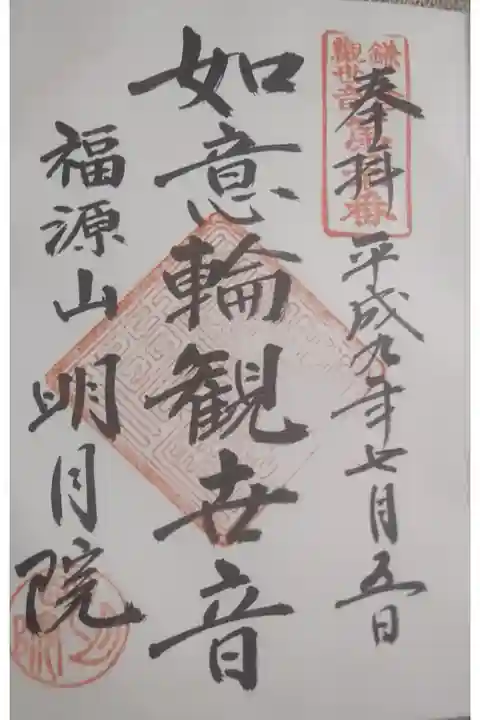 奉拝 平成九年七月五日
如意輪観世音
福源山 明月院